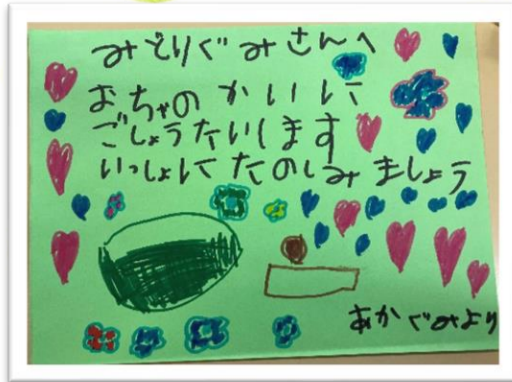 みどりぐみさんへ
おちゃのかいに
ごしょうたいします
いっしょにたのしみましょう
あかぐみより